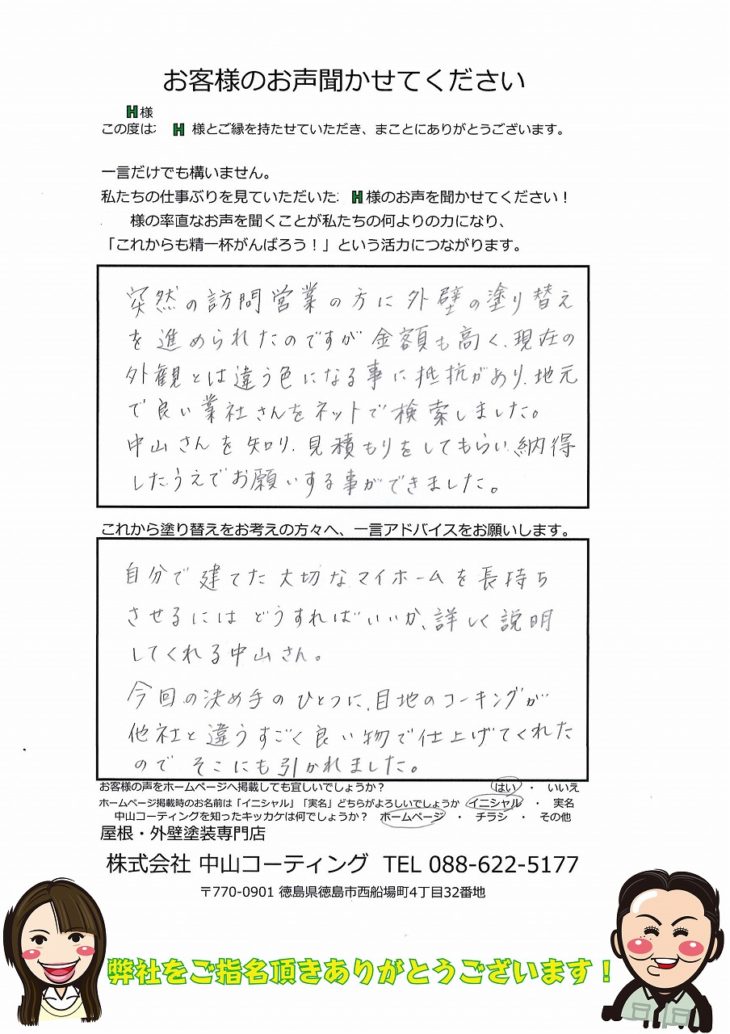 お客様のお声聞かせてください
H様
この度は H 様とご縁を持たせていただき、まことにありがとうございます。
一言だけでも構いません。
私たちの仕事ぶりを見ていただいた H様のお声を聞かせてください！
様の率直なお声を聞くことが私たちの何よりの力になり、
「これからも精一杯がんばろう！」という活力につながります。
突然の訪問営業の方に外壁の塗り替え
を進められたのですが金額も高く、現在の
外観とは違う色になる事に抵抗があり、地元
で良い業社さんをネットで検索しました。
中山さんを知り、見積もりをしてもらい、納得
したうえでお願いする事ができました。
これから塗り替えをお考えの方々へ、一言アドバイスをお願いします。
自分で建てた大切なマイホームを長持ち
させるにはどうすればいいか、詳しく説明
してくれる中山さん。
今回の決め手のひとつに、目地のコーキングが
他社と違うすごく良い物で仕上げてくれた
のでそこにも引かれました。
お客様の声をホームページへ掲載しても宜しいでしょうか？ はい ・ いいえ
ホームページ掲載時のお名前は「イニシャル」「実名」どちらがよろしいでしょうか イニシャル ・ 実名
中山コーティングを知ったキッカケは何でしょうか？ ホームページ ・ チラシ ・ その他
屋根・外壁塗装専門店
株式会社 中山コーティング TEL 088-622-5177
〒770-0901 徳島県徳島市西船場町4丁目32番地
弊社をご指名頂きありがとうございます！